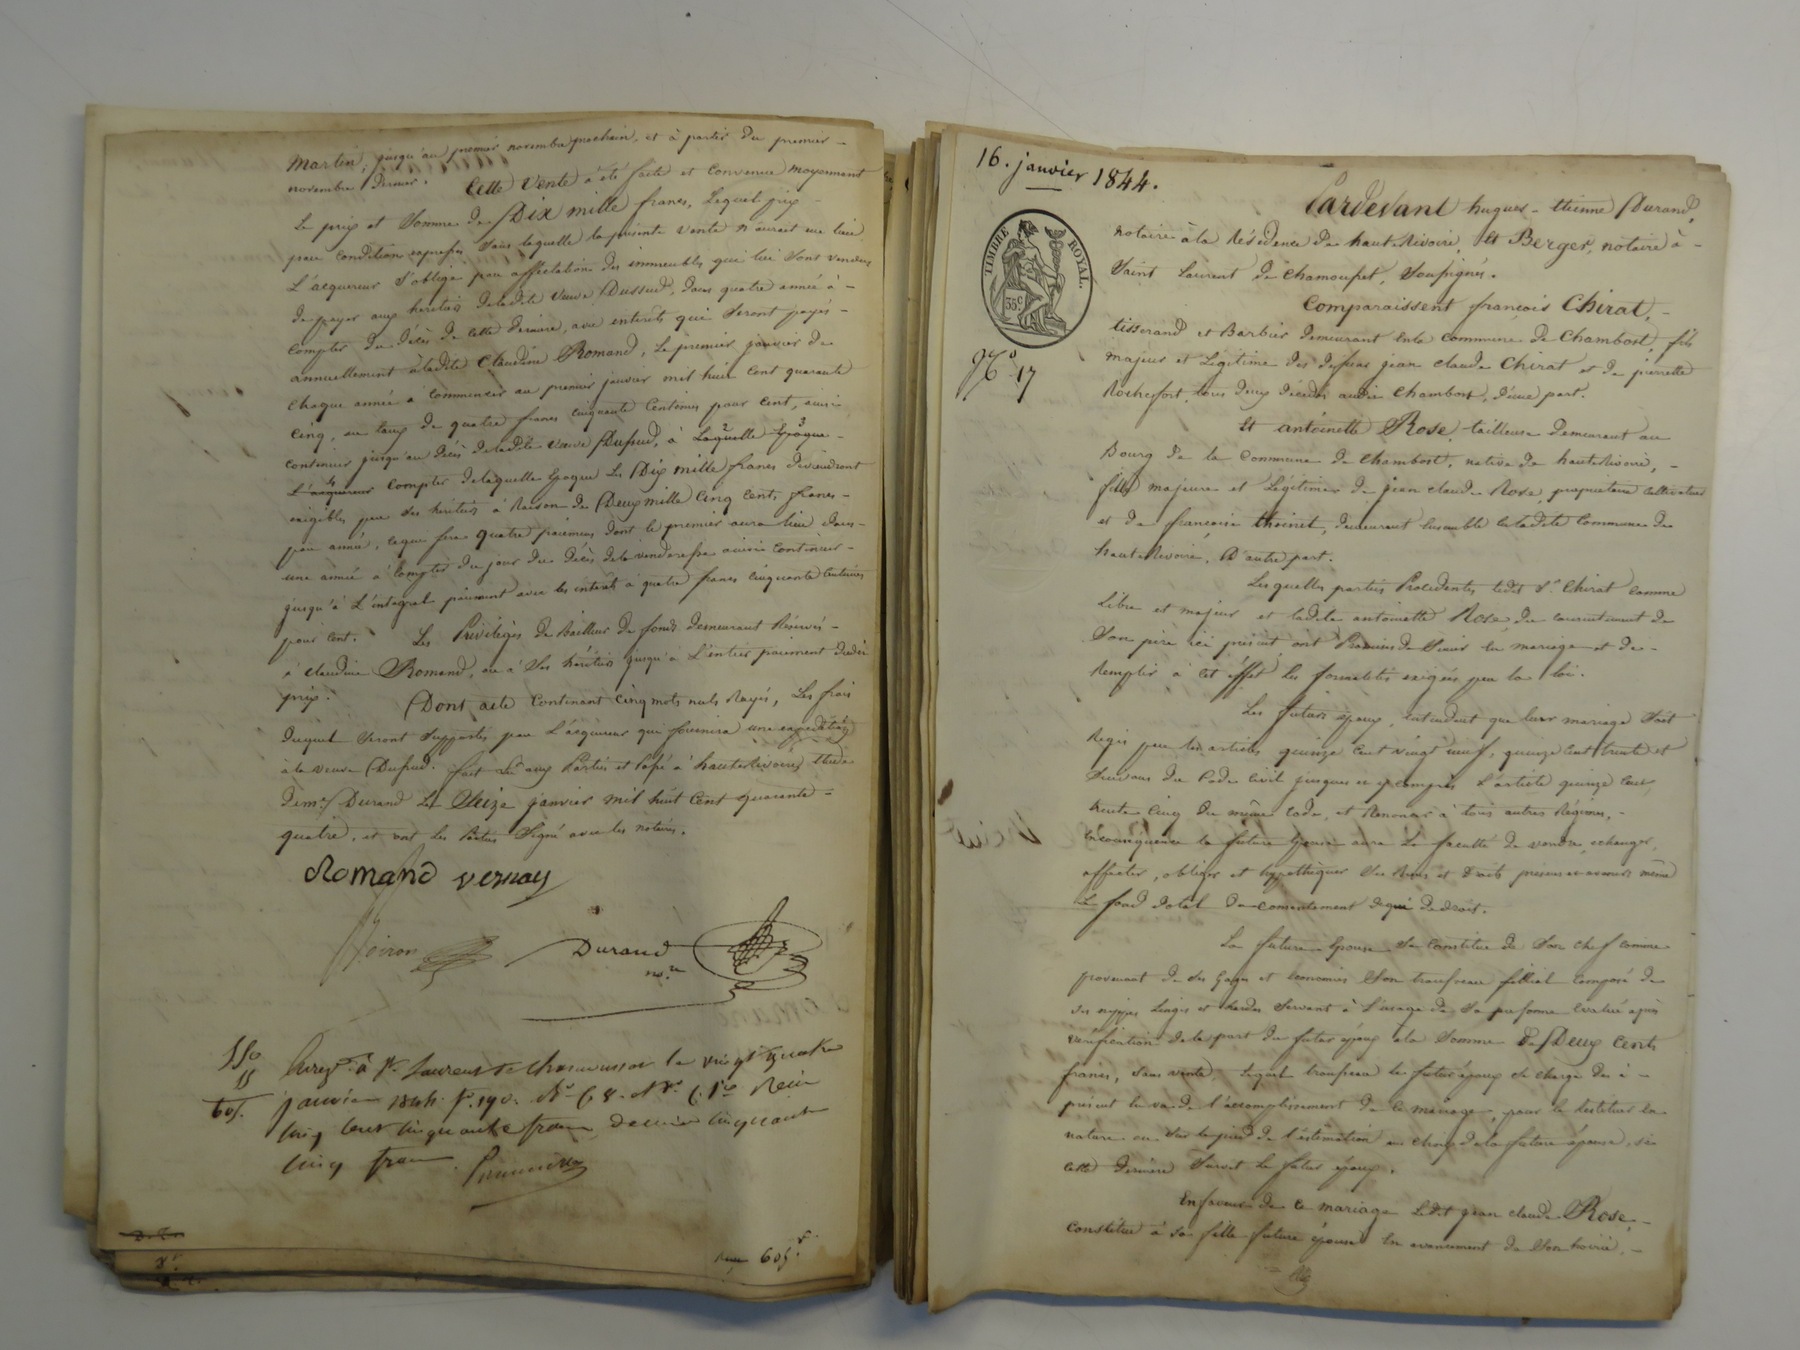 Martin, jusqu'au premier novembre prochain, et à partir du premier
novembre dernier.
Cette Vente a été faite et convenue moyennant
Le prix et Somme de Dix mille francs, Lequel prix
par condition expresse sans laquelle la presente vente n'aurait eu lieu
L'acquereur s'oblige par affectation des immeubles qui lui sont vendus
de payer aux heritiers de ladite veuve Dussud, dans quatre année à
compter du décès de cette derniere, avec interets qui seront payés
annuellement à ladite Claudine Romand, Le premier janvier de
chaque année à commencer au premier janvier mil huit cent quarante
cinq, au taux de quatre francs cinquante centimes pour cent, ainsi
continuer jusqu'au décès de ladite veuve Dussud, à Laquelle Epoque
L'acquereur compter de laquelle Epoque Les Dix mille francs deviendront
exigibles par ses héritiers à Raison de Deux mille Cinq cents francs
par année, ce qui fera quatre paiemens dont le premier aura lieu dans
une année à compter du jour du décès de la venderesse ainsi continuer
jusqu'à L'integral paiement avec les intérêts à quatre francs cinquante Centimes
pour cent.
Les Privilèges de Bailleur de fonds demeurant Réservés
à claudine Romand, ou à ses héritiers jusqu'à L'entier paiement dudit
prix.
Dont acte Contenant cinq mots nuls Rayés, Les frais
duquel seront supportés par L'acquereur qui fournira une expedition
à la veuve Dussud. fait Lu aux Parties et Passé à haute Rivoire, Etude
de me Durand Le Seize janvier mil huit Cent quarante
quatre, et ont Les Parties Signé avec les notaires.
Romand vernay
Durand
nre
550
55
605
Enreg. à St Laurent de chamousset le vingt quatre
janvier 1844 fo 190. Ro C 8. Reçu
cinq cent cinquante francs, decime cinquante
cinq francs
605 f
16. janvier 1844.
TIMBRE ROYAL.
35 c
No 17
Pardevant hugues-Etienne Durand,
notaire à la Résidence de haute Rivoire, Et Berger, notaire à
Saint Laurent de Chamousset, Soussignés.
Comparaissent françois Chirat,
tisserand et Barbier demeurant en la commune de Chambost, fils
majeur et Légitime des defunts jean claude Chirat et de pierrette
Rochefort, tous deux décédés audit Chambost, d'une part.
Et antoinette Rose, tailleuse demeurant au
Bourg de la Commune de Chambost, native de haute Rivoire,
fille majeure et Légitime de jean claude Rose proprietaire Cultivateur
et de françoise thoinet, demeurant Ensemble en ladite Commune de
haute Rivoire, D'autre part.
Lesquelles parties Procédantes ledit Sr Chirat comme
Libre et majeur et ladite antoinette Rose, du consentement de
Son père ici présent, ont Promis de S'unir en mariage et de
Remplir à cet éffet Les formalités exigées par la loi.
Les futurs époux, entendent que leur mariage Soit
Régis par les articles quinze cent vingt neuf, quinze cent trente et
Suivans du Code Civil jusques et y compris L'article quinze cent
trente cinq du même Code, et Renoncer à tous autres Régimes,
En conséquence la future Epouse aura La faculté de vendre, echanger,
affecter, obliger et hypothèquer ses Biens et Droits présens et avenirs même
Le fond dotal du consentement de qui de droit.
La future Epouse Se Constitue de Son chef comme
provenant de ses Gages et Economies Son trousseau fillial composé de
ses nippes Linges et hardes Servant à L'usage de Sa personne Evalué après
vérification de la part du futur époux à la Somme de Deux Cents
francs, Sans vente, duquel trousseau le futur époux se charge dès à
présent en vue de l'accomplissement de ce mariage, pour le Restituer en
nature ou Sur le pied de l'estimation au choix de la future épouse, si
cette derniere Survit Le futur époux.
En faveur de Ce mariage Ledit jean claude Rose,
Constitue à Sa fille future épouse En avancement de Son hoirie,